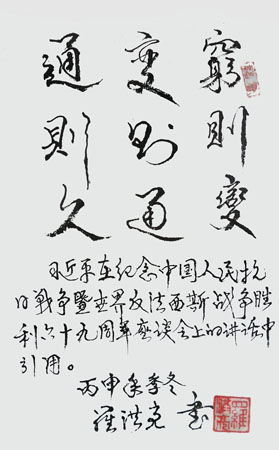 窮則變
變則通
通則久
习近平在纪念中国人民抗
日戰争暨世界反法西斯战争胜
利六十九周年座谈会上的讲话中
引用。
丙申年季冬
羅洪 书